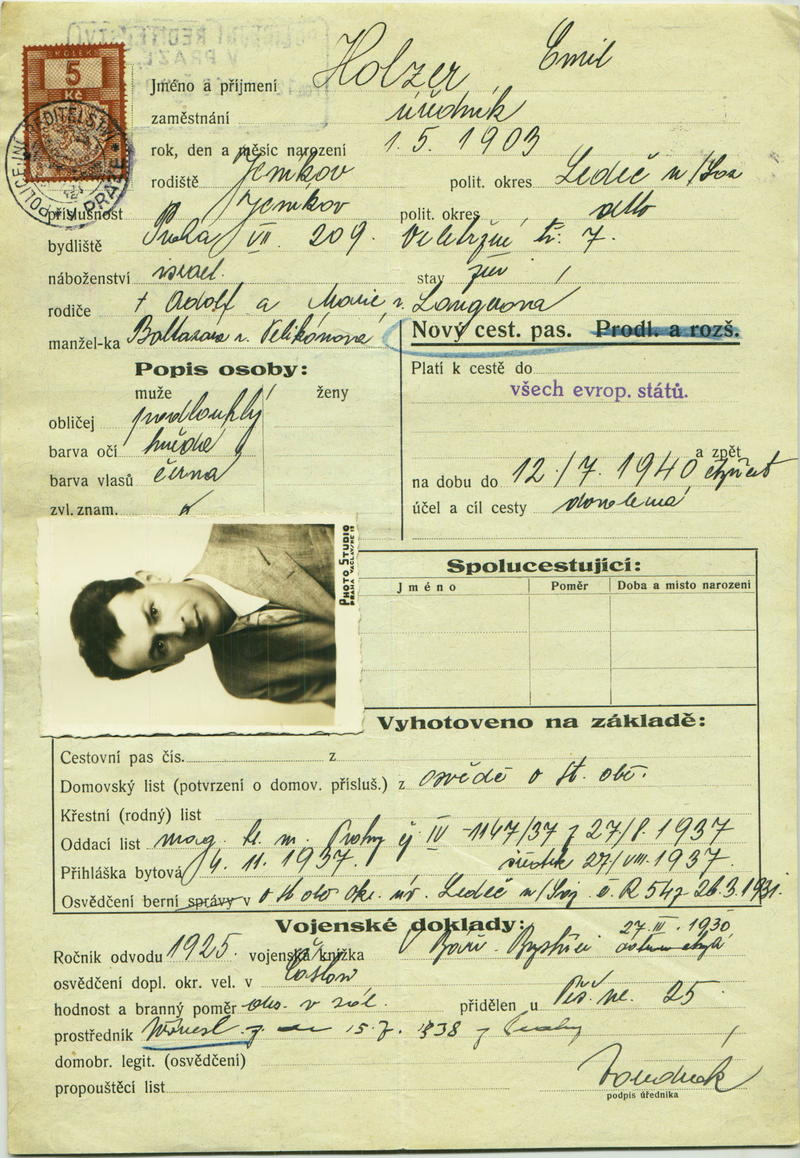 KOLEK
5
Kč
POLICEJNÍ ŘEDITELSTVÍ V PRAZE
Jméno a příjmení Holzer Emil
zaměstnání úředník
rok, den a měsíc narození 1. 5. 1903
rodiště Jenikov polit. okres Ledeč n/Sáz
příslušnost Jenikov polit. okres dtto
bydliště Praha VII 209. Veletržní tř. 7.
náboženství israel. stav žen
rodiče + Adolf a Marie r. Langrová
manžel-ka r. Velikánová
Nový cest. pas. Prodl. a rozš.
Popis osoby:
muže ženy
Platí k cestě do
všech evrop. států.
obličej podlouhlý
barva očí hnědá
barva vlasů černá
zvl. znam.
a zpět
na dobu do 12./7. 1940
účel a cíl cesty dovolená
PHOTO STUDIO
PRAHA VÁCLAVSKÉ
Spolucestující:
Jméno Poměr Doba a místo narození
Vyhotoveno na základě:
Cestovní pas čís. z
Domovský list (potvrzení o domov. přísluš.) z osvěd o st. obč.
Křestní (rodný) list
Oddací list mag. hl. m. Prahy čj IV -1147/37 z 27/8. 1937
Přihláška bytová 4. 11. 1937. 27/VIII. 1937.
Osvědčení berní správy v o st obč okr. úř. Ledeč n/Sáz č. R 547 26.3.1931.
Vojenské doklady: 27. III. 1930
Ročník odvodu 1925. vojenská knížka Báň. Bystřici
osvědčení dopl. okr. vel. v Čáslav
hodnost a branný poměr v zál. přidělen u Pěš. pl. 25
prostředník 15. 7. 1938 z Prahy
domobr. legit. (osvědčení)
propouštěcí list
podpis úředníka